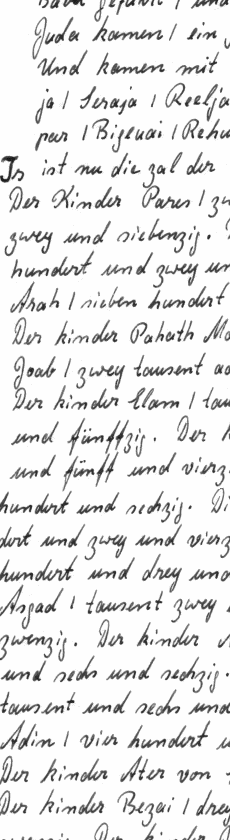 Juda kamen / ein
Und kamen mit
ja / Seraja / Reelja
par / Bigeuai / Rehu
Js ist nu die zal der
Der Kinder Pares / zw
zwey und siebenzig.
hundert und zwey un
Arah / sieben hundert
Der kinder Pahath Mo
Joab / zwey tausent ac
Der kinder Elam / tau
und fünffzig. Der k
und fünff und vierzi
hundert und sechzig. Di
dert und zwey und vierz
hundert und drey und
Asgad / tausent zwey
zwenzig. Der kinder A
und sechs und sechzig.
tausent und sechs und
Adin / vier hundert u
Der kinder Ater von
Der kinder Bezai / drey